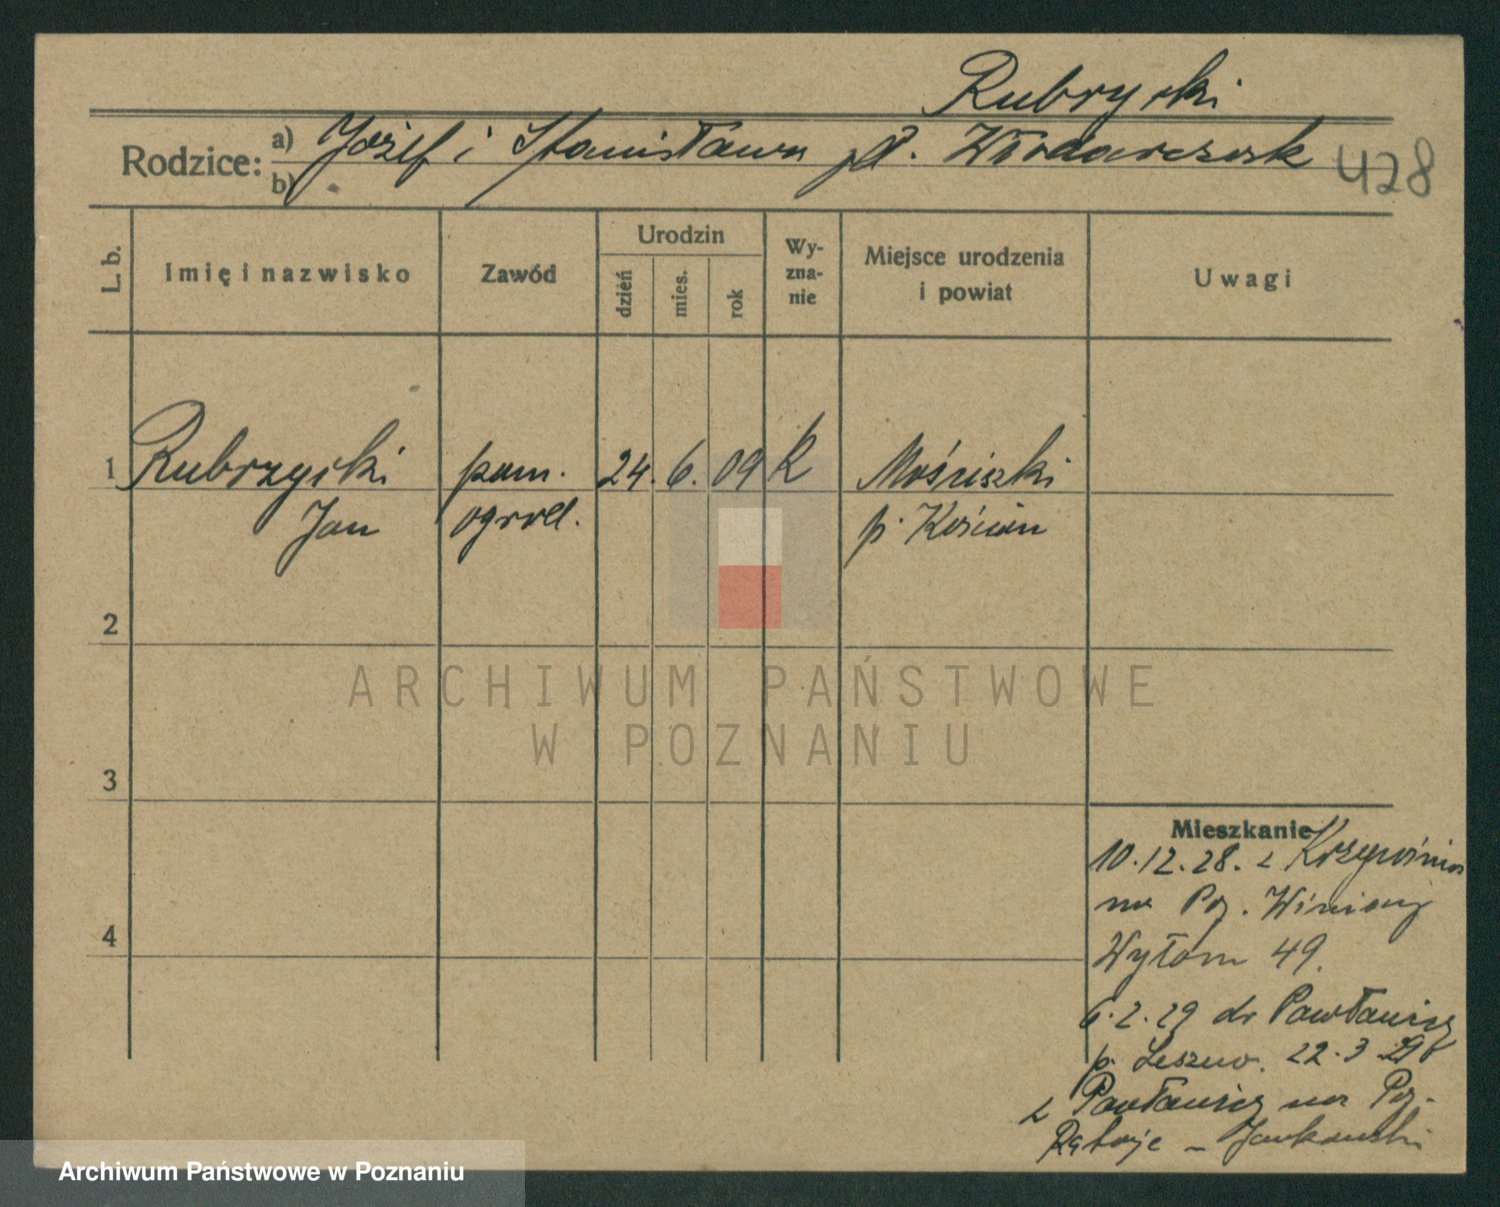 Rubrycki
Rodzice: a) Józef i Stanisława
b)
428
L. b. Imię i nazwisko Zawód Urodzin dzień mies. rok Wy-zna-nie Miejsce urodzenia i powiat Uwagi
1 Rubrzycki pom. 24. 6. 09 K Mościszki
Jan ogrod. p. Kościan
2
ARCHIWUM PAŃSTWOWE
W POZNANIU
3
Mieszkanie
10.12.28. z Krzywinia
na Poz. Winiary
4
Wyłom 49.
6.2.29 do Pawłowic
p. Leszno. 22.3.29
z Pawłowic na Poz.
Rataje - Jankowski
Archiwum Państwowe w Poznaniu